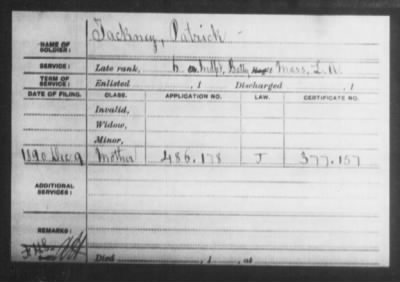 Tackney, Patrick
NAME OF SOLDIER:
SERVICE: Late rank, Batty Mass. L. A.
TERM OF SERVICE: Enlisted , 1 Discharged , 1
DATE OF FILING. CLASS. APPLICATION NO. LAW. CERTIFICATE NO.
Invalid,
Widow,
Minor,
1890 Dec. 9 Mother 486.178 J 377.157
ADDITIONAL SERVICES:
REMARKS:
Died , 1 , at